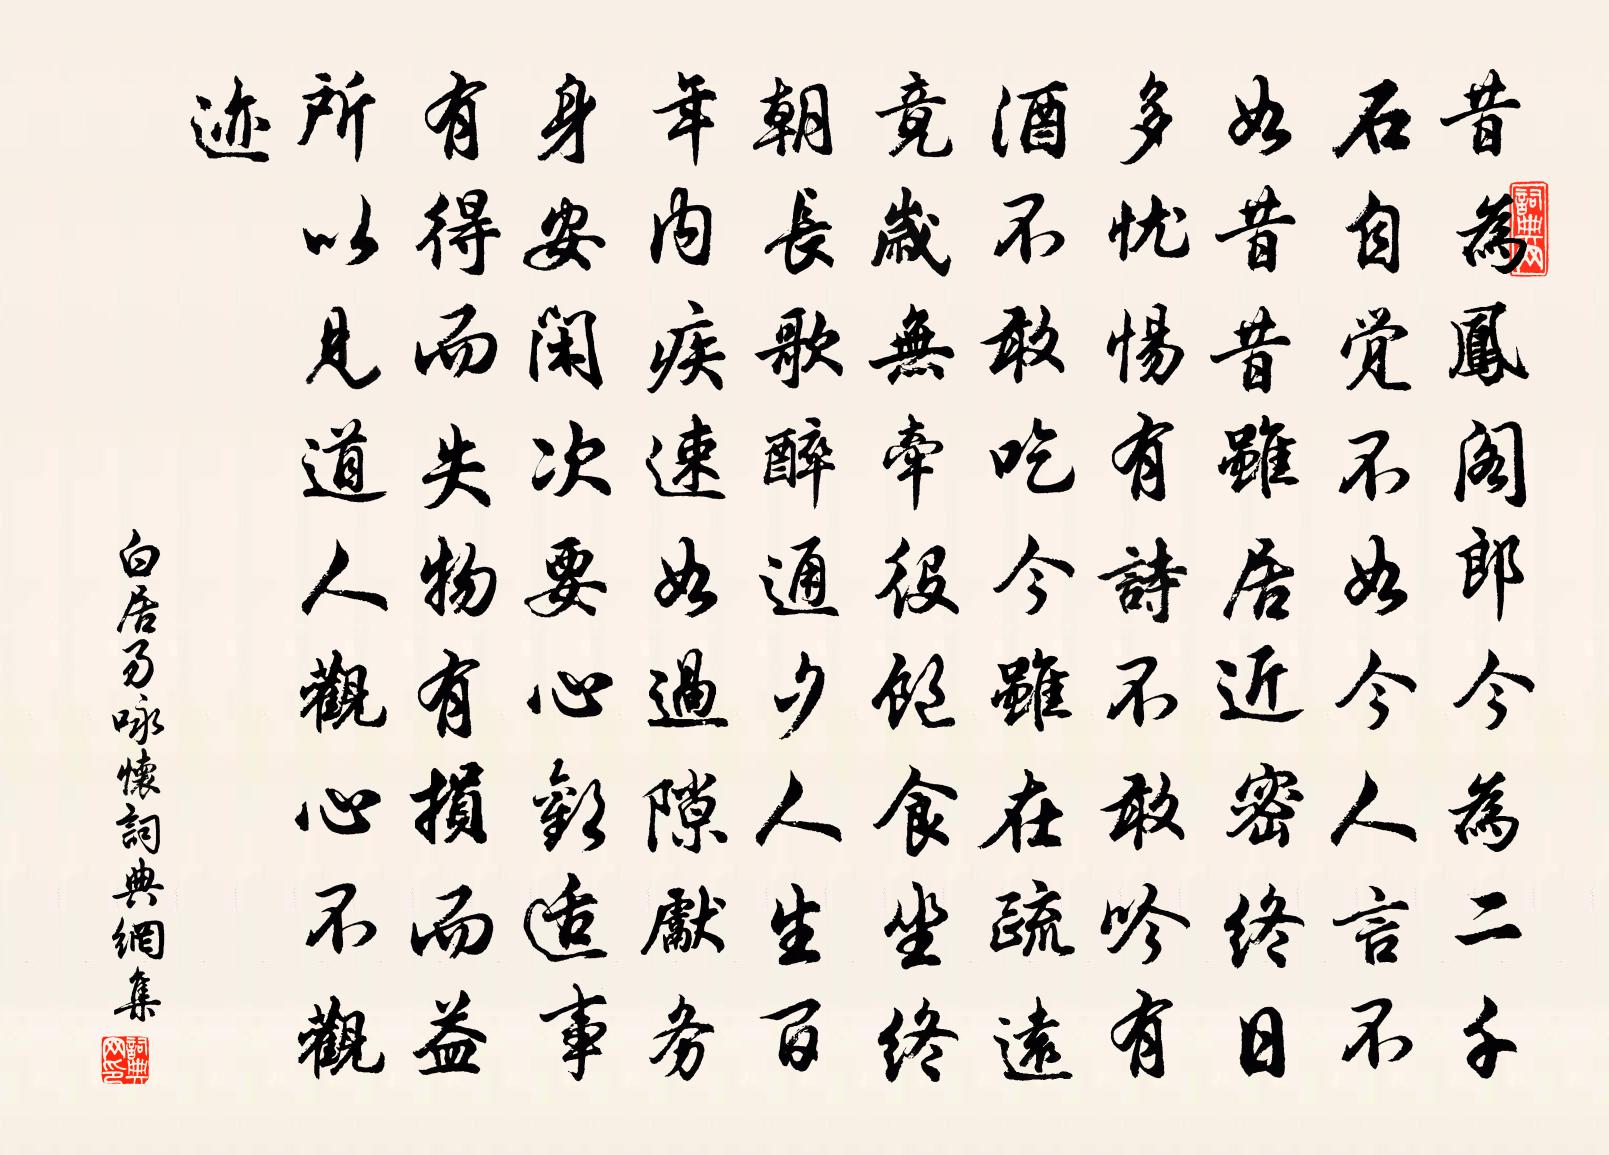 昔為鳳閣郎今為二千
石自觉不如今人言不
如昔昔雖居近密終日
多忧惕有詩不敢吟有
酒不敢吃今雖在疏遠
竟歲無牵役飽食坐終
朝長歌醉通夕人生百
年内疾速如過隙獻务
身安閑次要心歡适事
有得而失物有損而益
所以見道人觀心不觀
迹
白居易咏懷詞典網集
詞典网
詞典网印